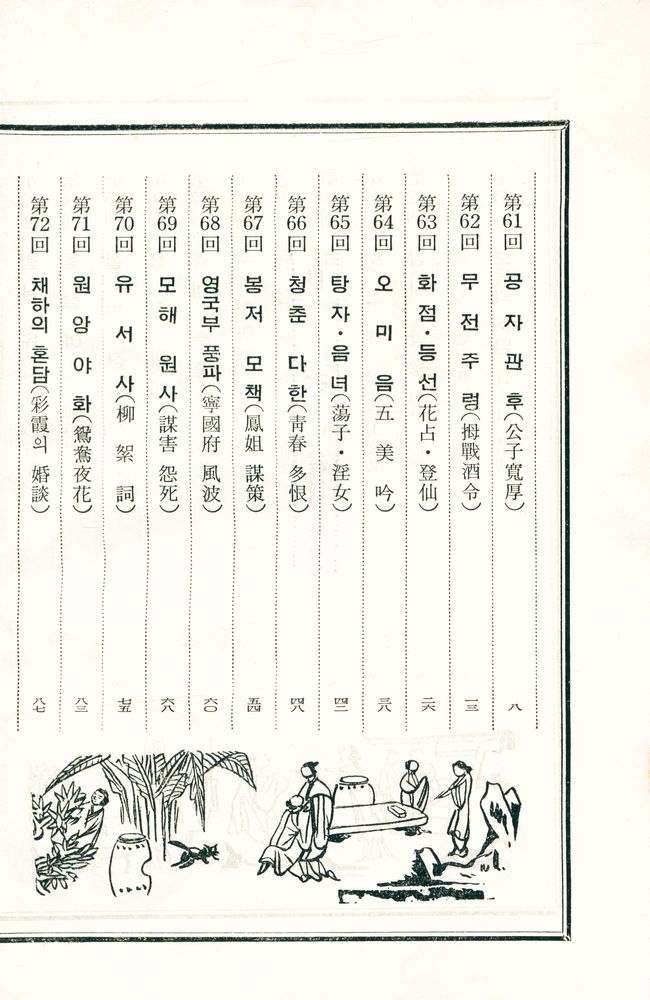 第61回 공자관후(公子寬厚) 八
第62回 무전주령(拇戰酒令) 一三
第63回 화점·등선(花占·登仙) 二六
第64回 오미음(五美吟) 三八
第65回 탕자·음녀(蕩子·淫女) 四二
第66回 청춘 다한(靑春 多恨) 四八
第67回 봉저 모책(鳳姐 謀策) 五四
第68回 영국부 풍파(寧國府 風波) 六〇
第69回 모해 원사(謀害 怨死) 六八
第70回 유서사(柳絮詞) 七五
第71回 원앙야화(鴛鴦夜花) 八三
第72回 채하의 혼담(彩霞의 婚談) 八七